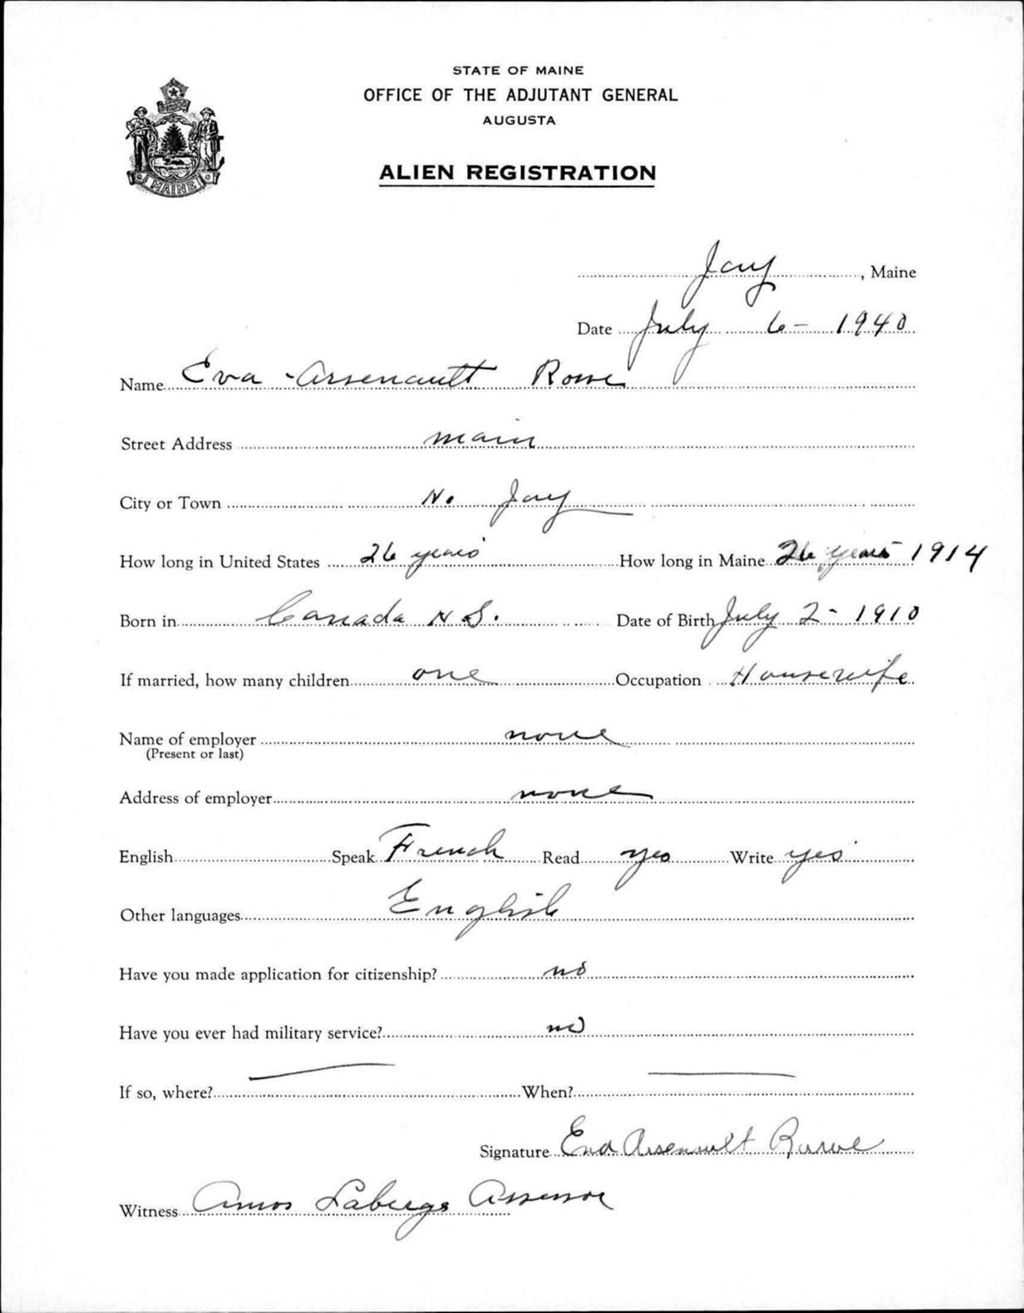 STATE OF MAINE
OFFICE OF THE ADJUTANT GENERAL
AUGUSTA
ALIEN REGISTRATION
MAINE
Jay, Maine
Date July 6 - 1940
Name Eva - Arsenault Rowe
Street Address main
City or Town No. Jay
How long in United States 26 years How long in Maine 26 years - 1914
Born in Canada N S. Date of Birth July 2 - 1910
If married, how many children one Occupation Housewife
Name of employer none
(Present or last)
Address of employer none
English Speak French Read yes Write yes
Other languages English
Have you made application for citizenship? no
Have you ever had military service? no
If so, where? When?
Signature Eva Arsenault Rowe
Witness Amos Laberge Assessor